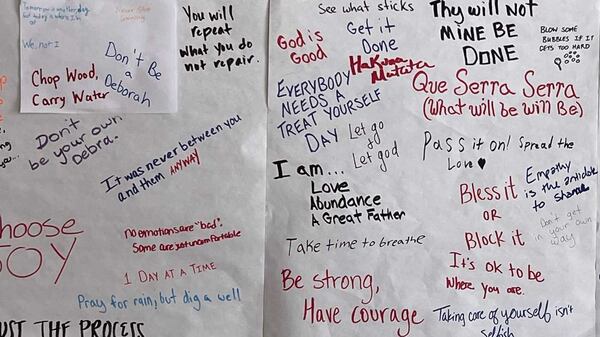 Tomorrow is another day
but today is where I'm
Never Stop
We, not I
Chop Wood,
Carry Water
Don't Be
a
Deborah
You will
repeat
what you do
not repair.
Don't
be your own
Debra.
It was never between you
and them ANYWAY
Choose
JOY
no emotions are "bad".
Some are just uncomfortable
1 DAY AT A TIME
Pray for rain, but dig a well
TRUST THE PROCESS
See what sticks
God is
Good
Get it
Done
Hakuna
Matata
EVERYBODY
NEEDS A
TREAT YOURSELF
DAY
Let go
&
Let god
I am...
Love
Abundance
A Great Father
Take time to breathe
Be strong,
Have courage
Thy will Not
MINE BE
DONE
BLOW SOME
BUBBLES IF IT
GETS TOO HARD
Que Serra Serra
(What will be will Be)
Pass it on! Spread the
Love
Bless it
OR
Block it
Empathy
is the antidote
to shame
Don't get
in your own
way
It's ok to be
Where you are.
Taking care of yourself isn't
selfish